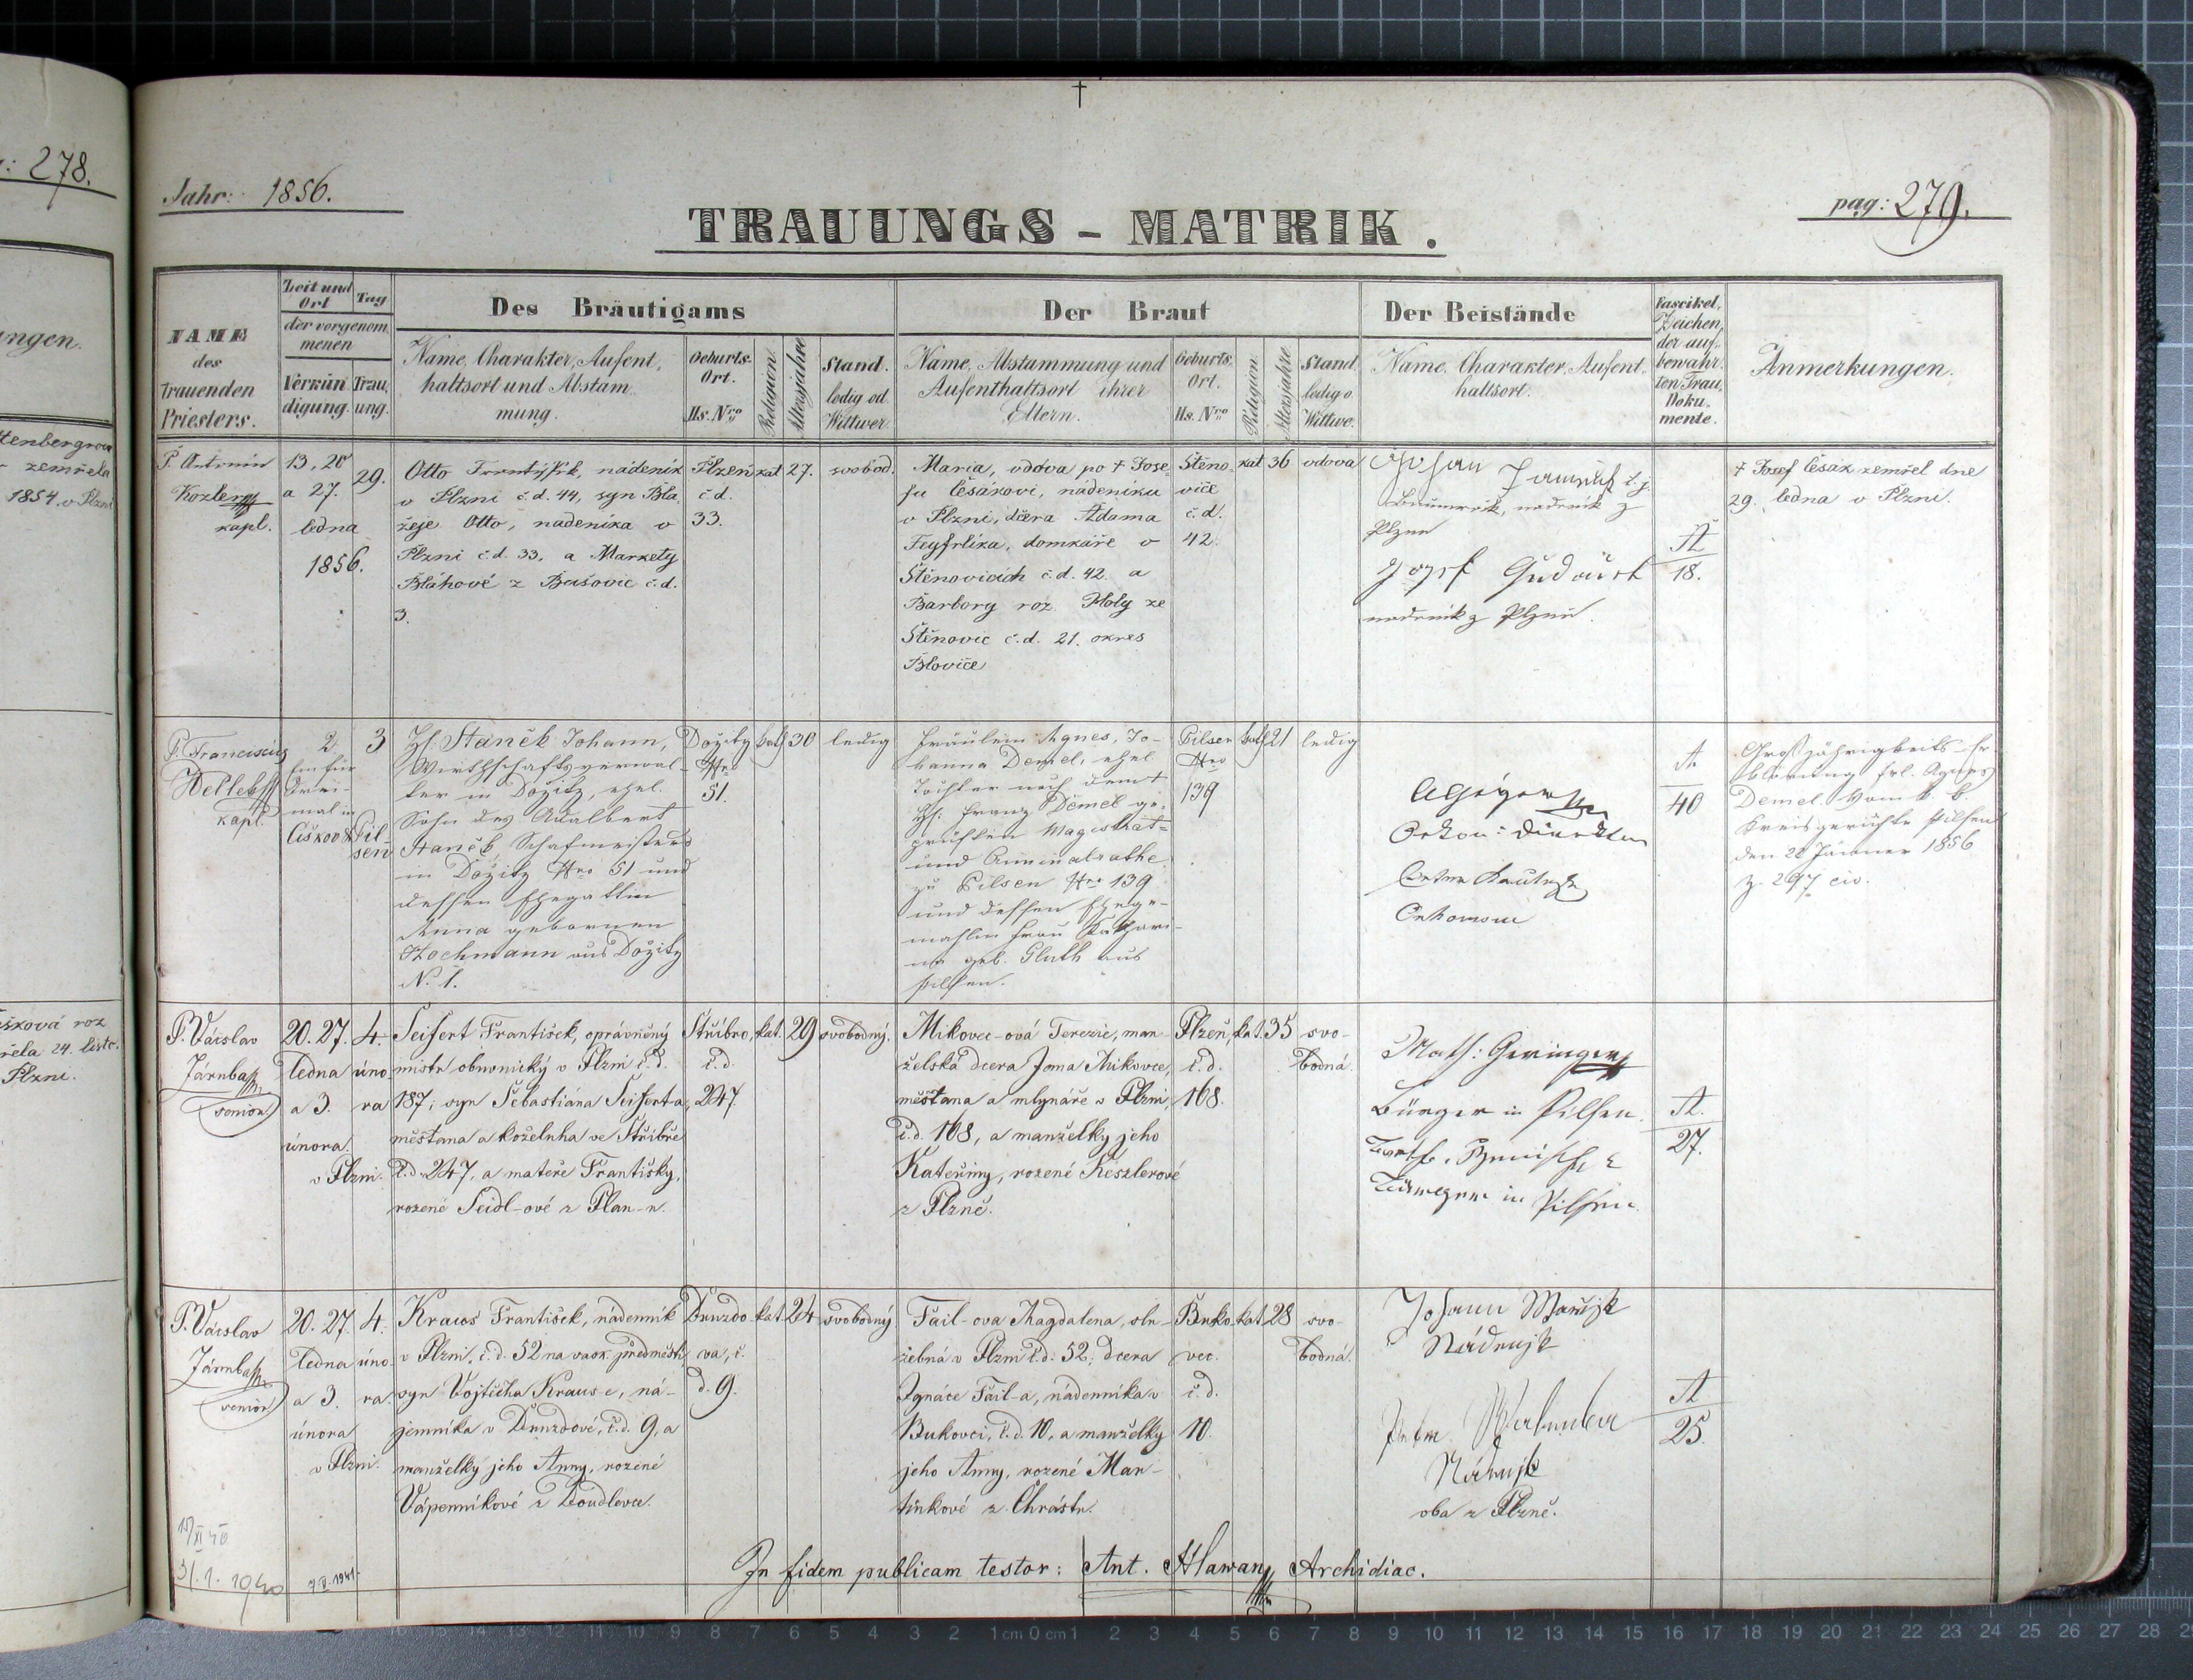 : 278.
ngen.
zemřela
1854. v Plzni
roz
24. listo.
Plzni.
†
Jahr: 1856.
pag: 279.
TRAUUNGS - MATRIK.
NAME
des
Trauenden
Priesters.
Zeit und
Ort
Tag
der vorgenom,
menen
Verkün
digung.
Trau,
ung.
Des Bräutigams
Name, Charakter, Aufent,
haltsort und Abstam
mung.
Geburts-
Ort.
Hs. Nro
Religion
Altersjahre
Stand.
ledig od.
Wittwer.
Der Braut
Name, Abstammung und
Aufenthaltsort ihrer
Eltern.
Geburts-
Ort.
Hs. Nro
Religion
Altersjahre.
Stand
ledig o.
Wittwe.
Der Beistände
Name, Charakter, Aufent-
haltsort.
Fascikel,
Zeichen,
der auf-
bewahr-
ten Trau,
Doku-
mente.
Anmerkungen.
P. Antonín
Kozler
kapl.
13, 20
a 27.
ledna
1856.
29.
Otto František, nádeník
v Plzni č.d. 44, syn Bla
žeje Otto, nadeníka v
Plzni č.d. 33, a Markety
Bláhové z Bušovic č.d.
3.
Plzeň
č.d.
33.
kat
27.
svobod.
Maria, vdova po † Jose
fu Česákovi, nádeníku
v Plzni, dcera Adama
Feyfrlíka, domkáře v
Štěnovicích č.d. 42. a
Barbory roz. Holy ze
Štěnovic č.d. 21. okres
Blovice
Štěno
vice
č.d.
42.
kat
36
vdova
Johan
nadeník z
Plzně
Josef
nadeník z Plzně.
A
18.
† Josef Česák zemřel dne
29. ledna v Plzni.
P. Franciscus
kapl.
2
Ein für
drei-
mal in
3
Pil-
sen
H. Staněk Johann,
Wirthschaftsverwal-
ter in Dožitz, ehel.
Sohn des Adalbert
Staněk Schafmeisters
in Dožitz Nro 51 und
dessen Ehegattin
Anna gebornen
Hochmann aus Dožitz
N. 1.
Dožitz
Nro
51.
kath
30
ledig
Fräulein Agnes, Jo-
hanna Demel, ehel
Tochter nach dem †
H. Franz Demel ge-
prüften Magistrat-
und Criminalrathe
zu Pilsen Nro 139
und dessen Ehege-
mahlin Frau Kathari-
na geb. Gluth aus
Pilsen.
Pilsen
Nro
139
kath
21
ledig
A
40
Großjährigkeits-Er
klärung Frl. Agnes
Demel vom k. k.
Kreisgerichte Pilsen
den 22 Jänner 1856
z. 297 civ.
P. Václav
Járnba
senior
20. 27.
ledna
a 3.
února.
v Plzni.
4.
úno-
ra
Seifert František, oprávněný
mistr obuvnický v Plzni č.d.
187; syn Šebastiána Seiferta,
měšťana a koželuha ve Stříbře
č.d. 247, a mateře Františky,
rozené Seidl-ové z Plan-n.
Stříbro,
č.d.
247.
kat.
29
svobodný.
Mikovec-ová Terezie, man
želská dcera Jana Mikovce,
měšťana a mlynáře v Plzni,
č.d. 168, a manželky jeho
Kateřiny, rozené Keszlerové
z Plzně.
Plzeň,
č.d.
168.
kat.
35
svo-
bodná.
Math: Geringer
Bürger in Pilsen.
in Pilsen.
A.
27.
P. Václav
Járnba
senior
20. 27.
ledna
a 3.
února
v Plzni.
4.
úno-
ra.
Kraus František, nádenník
v Plzni, č.d. 52 na sask. předměstí,
syn Vojtěcha Kraus-e, ná-
jemníka v Druzdové, č.d. 9, a
manželky jeho Anny, rozené
Vápenníkové z Doudlevce.
Druzdo
va, č.
d. 9.
kat.
24
svobodný
Fail-ova Magdalena, slu-
žebná v Plzni č.d. 52; dcera
Ignáce Fail-a, nádenníka v
Bukovci, č.d. 10, a manželky
jeho Anny, rozené Mar-
tínkové z Chrástu.
Buko-
vec.
č.d.
10.
kat.
28
svo-
bodná.
Johann
Nádenjk
Nádenjk
oba z Plzně.
A
25.
31.1. 1940
7.V.1941
In fidem publicam testor: Ant. Hlawan Archidiac.